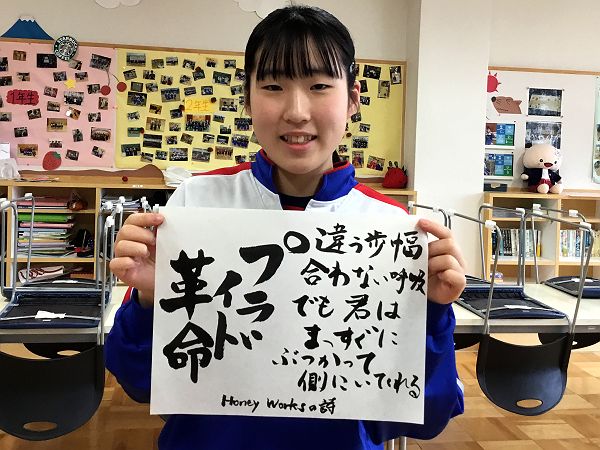 違う歩幅
合わない呼吸
でも君は
まっすぐに
ぶつかって
側にいてくれる
プライド
革命
Honey Worksの詩
1年生
2年生